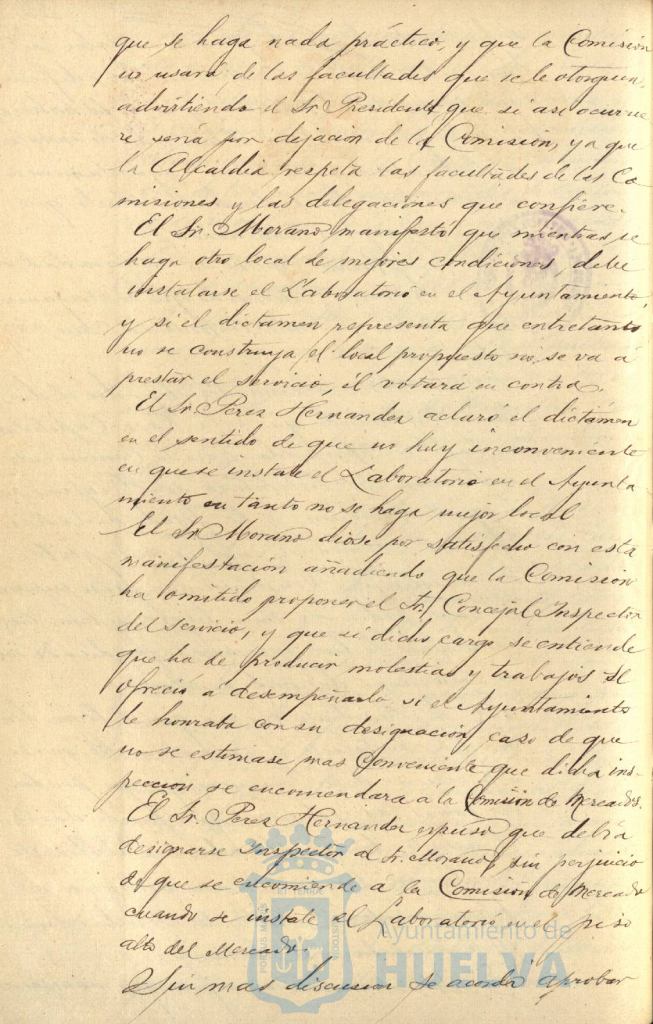 que se haga nada práctico, y que la Comisión
no usará de las facultades que se le otorguen,
advirtiendo el Sr. Presidente que si asi ocurrie
re sería por dejación de la Comisión, ya que
la Alcaldía respeta las facultades de las Co
misiones y las delegaciones que confiere.
El Sr. Morano manifestó que mientras se
haga otro local de mejores condiciones, debe
instalarse el Laboratorio en el Ayuntamiento,
y si el dictamen representa que entretanto
no se construya el local propuesto no se va á
prestar el servicio, él votará en contra.
El Sr. Perez Hernandez aclaró el dictámen
en el sentido de que no hay inconveniente
en que se instale el Laboratorio en el Ayunta
miento en tanto no se haga mejor local
El Sr. Morano diose por satisfecho con esta
manifestación añadiendo que la Comisión
ha omitido proponer el Sr. Concejal Inspector
del servicio, y que si dicho cargo se entiende
que ha de producir molestias y trabajos él se
ofreció á desempeñarlo si el Ayuntamiento
le honraba con su designación, caso de que
no se estimase mas conveniente que dicha ins-
pección se encomendara á la Comisión de Mercados.
El Sr. Perez Hernandez expuso que debía
designarse Inspector al Sr. Morano, sin perjuicio
de que se encomiende a la Comisión de Mercado
cuando se instale el Laboratorio en el piso
alto del Mercado.
Sin mas discusion se acordó aprobar
Ayuntamiento de
HUELVA